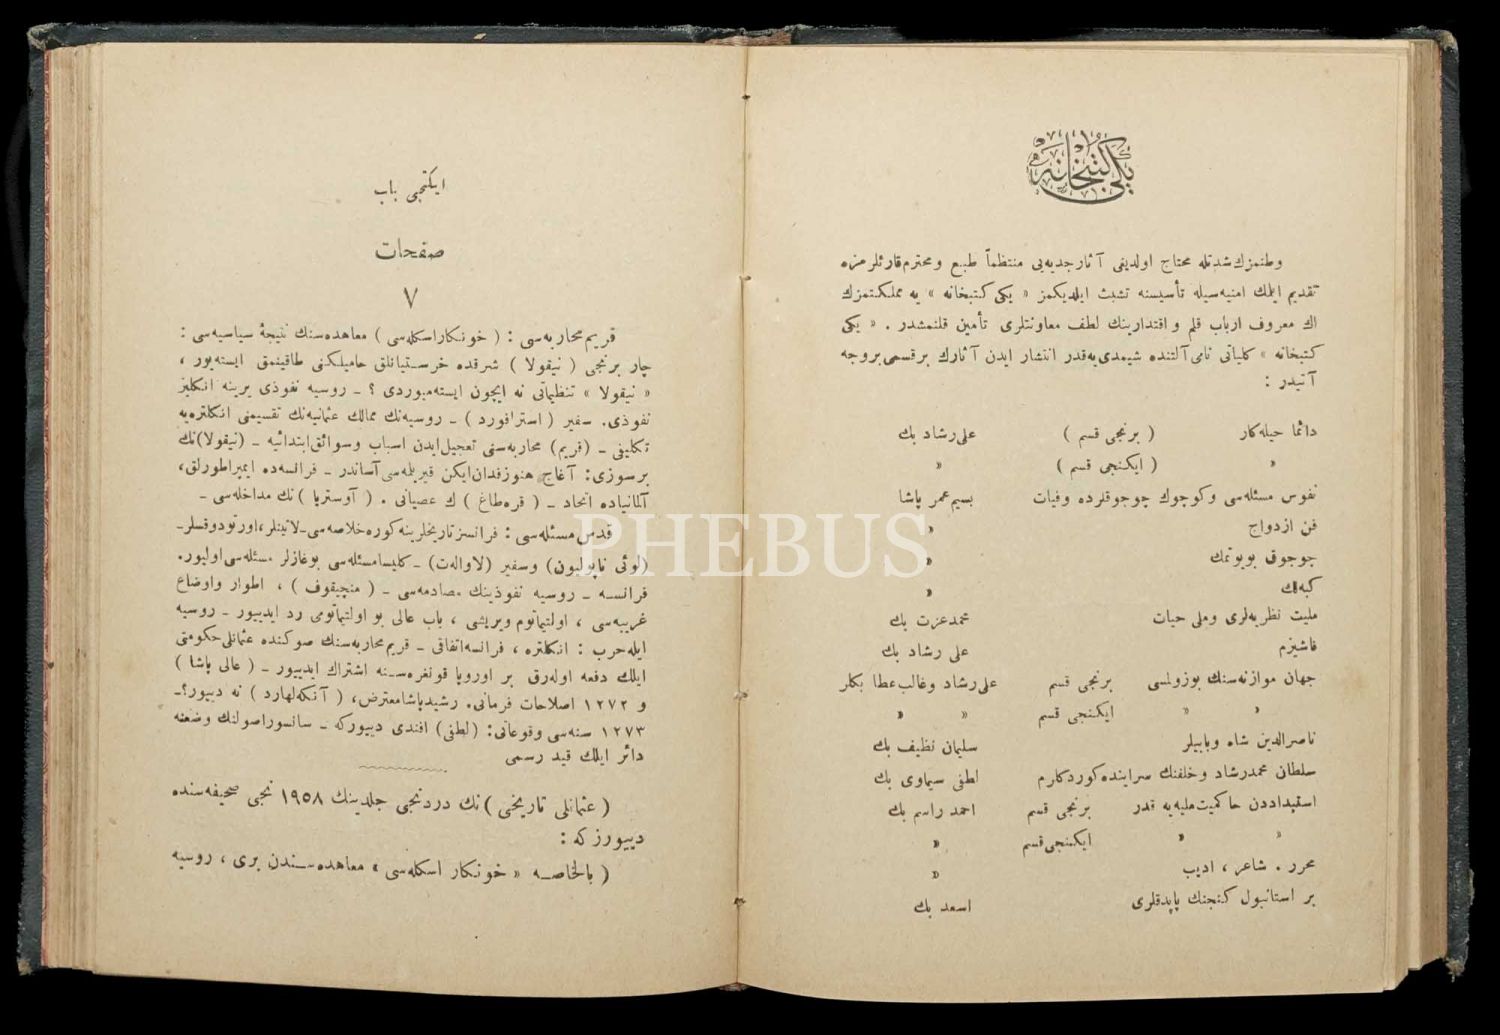 یکی کتبخانه
وطنمزك شدتله محتاج اولدیغی آثار جدیه‌یی منتظماً طبع و محترم قارئلرمزه
تقدیم ایلك امنیه‌سیله تأسیسنه تشبث ایلدیکمز « یکی کتبخانه » یه مملکتمزك
اك معروف ارباب قلم و اقتدارینك لطف معاونتلری تأمین قلنمشدر . « یکی
کتبخانه » کلیاتی نامی آلتنده شیمدی‌یه‌قدر انتشار ایدن آثارك بر قسمی بروجه
آتیدر :
دائما حیله‌کار ( برنجی قسم ) علی رشاد بك
» ( ایکنجی قسم ) »
نفوس مسئله‌سی و کوچوك چوجوقلرده وفیات بسیم عمر پاشا
فن ازدواج »
چوجوق بویوتمك »
کبه‌لك »
ملیت نظریه‌لری و ملی حیات محمد عزت بك
فاشیزم علی رشاد بك
جهان موازنه‌سنك بوزولمسی برنجی قسم علی رشاد و غالب عطا بکلر
» » ایکنجی قسم » »
ناصرالدین شاه و بابیلر سلیمان نظیف بك
سلطان محمد رشاد و خلفنك سراینده کوردکلرم لطفی سیماوی بك
استبداددن حاکمیت ملیه‌یه قدر برنجی قسم احمد راسم بك
» » ایکنجی قسم »
محرر . شاعر ، ادیب »
بر استانبول کنجنك یاپدقلری اسعد بك
ایکنجی باب
صفحات
٧
قریم محاربه‌سی : ( خونکار اسکله‌سی ) معاهده‌سنك نتیجهٔ سیاسیه‌سی :
چار برنجی ( نیقولا ) شرقده خرستیانلق حامیلکنی طاقینمق ایسته‌یور ،
« نیقولا » تنظیماتی نه ایچون ایسته‌میوردی ؟ ـ روسیه نفوذی یرینه انکلیز
نفوذی. سفیر ( استرافورد ) ـ روسیه‌نك ممالك عثمانیه‌نك تقسیمنی انکلتره‌یه
تکلیفی ـ (قریم) محاربه‌سنی تعجیل ایدن اسباب وسوائق ابتدائیه ـ (نیقولا)نك
بر سوزی: آغاج هنوز فدان ایکن قیریلمه‌سی آساندر ـ فرانسه‌ده ایمپراطورلق،
آلمانیاده اتحاد ـ ( قره‌طاغ ) ك عصیانی . ( آوستریا ) نك مداخله‌سی ـ
قدس مسئله‌سی : فرانسز تاریخلرینه کوره خلاصه‌سی ـ لاتینلر، اورتودوقسلر ـ
(لوئی ناپولیون) وسفیر (لاواله‌ت) ـ کلیسا مسئله‌سی بوغازلر مسئله‌سی اولیور.
فرانسه ـ روسیه نفوذینك مصادمه‌سی ـ ( منچیقوف ) ، اطوار واوضاع
غریبه‌سی ، اولتیماتوم ویریشی ، باب عالی بو اولتیماتومی رد ایدییور ـ روسیه
ایله حرب : انکلتره ، فرانسه اتفاقی ـ قریم محاربه‌سنك صوکنده عثمانلی حکومتی
ایلك دفعه اوله‌رق بر اوروپا قونغره‌سنه اشتراك ایدییور ـ ( عالی پاشا )
و ١٢٧٢ اصلاحات فرمانی. رشید پاشا معترض، ( آنکه‌لهارد ) نه دییور؟ـ
١٢٧٣ سنه‌سی وقوعاتی: (لطفی) افندی دییورکه ـ سانسور اصولنك وضعنه
دائر ایلك قید رسمی
( عثمانلی تاریخی )نك دردنجی جلدینك ١٩٥٨ نجی صحیفه‌سنده
دییورزکه :
( بالخاصه « خونکار اسکله‌سی » معاهده‌سندن بری ، روسیه
PHEBUS